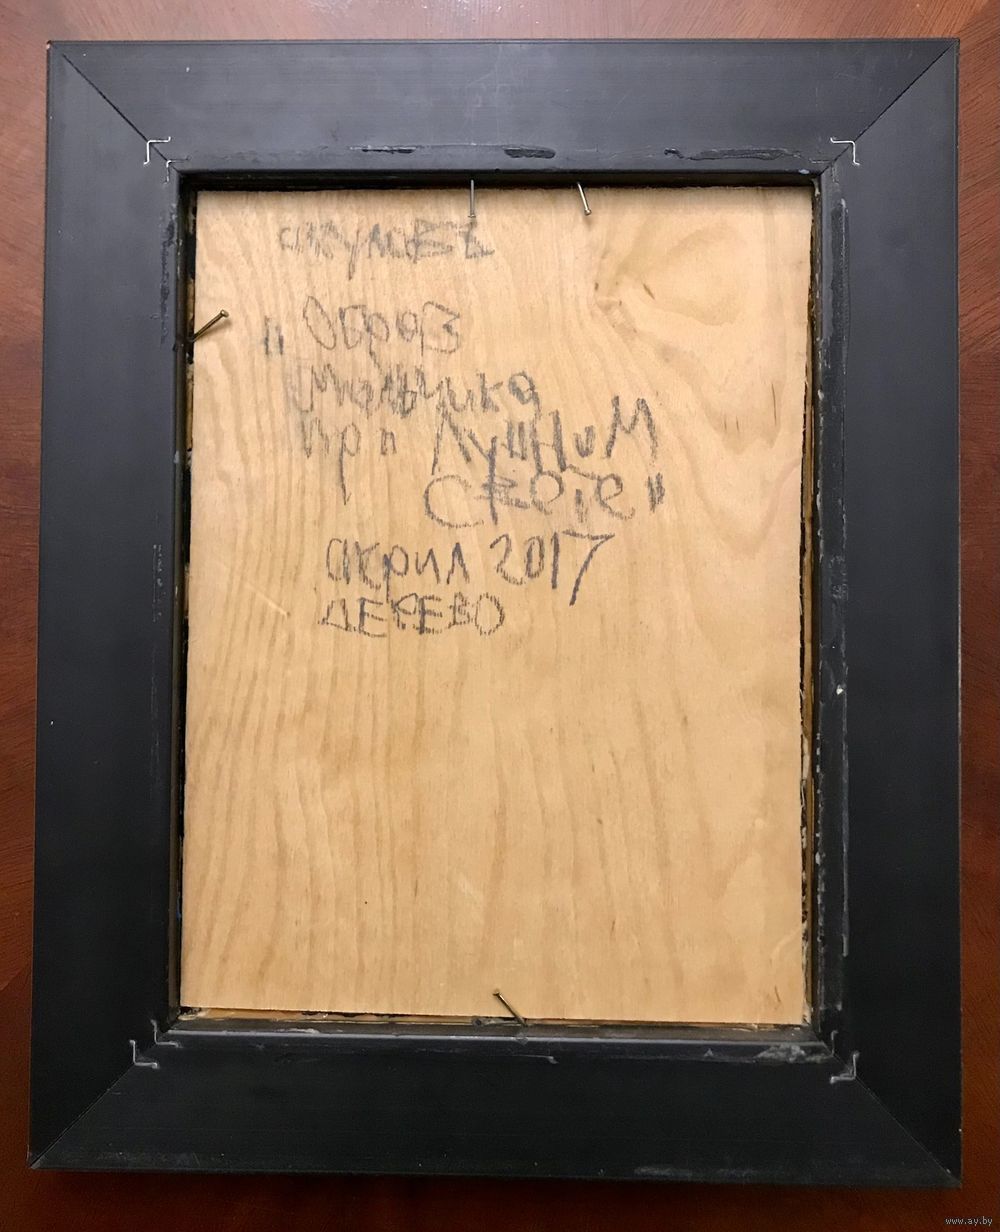 „ Образ
Мальчика
При Лунном
свете"
акрил 2017
ДЕРЕВО
www.ay.by